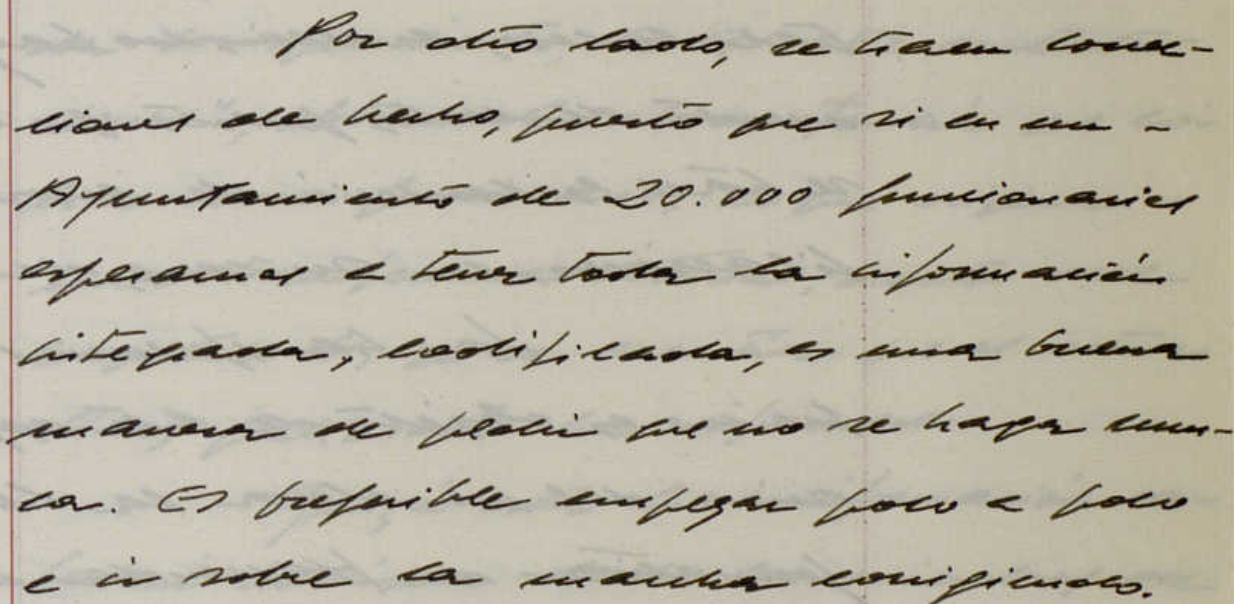 Por otro lado, se traen condi-
ciones de hecho, puesto que si en un -
Ayuntamiento de 20.000 funcionarios
esperamos a tener toda la información
integrada, codificada, es una buena
manera de pedir que no se haga nun-
ca. Es preferible empezar poco a poco
e ir sobre la marcha corrigiendo.